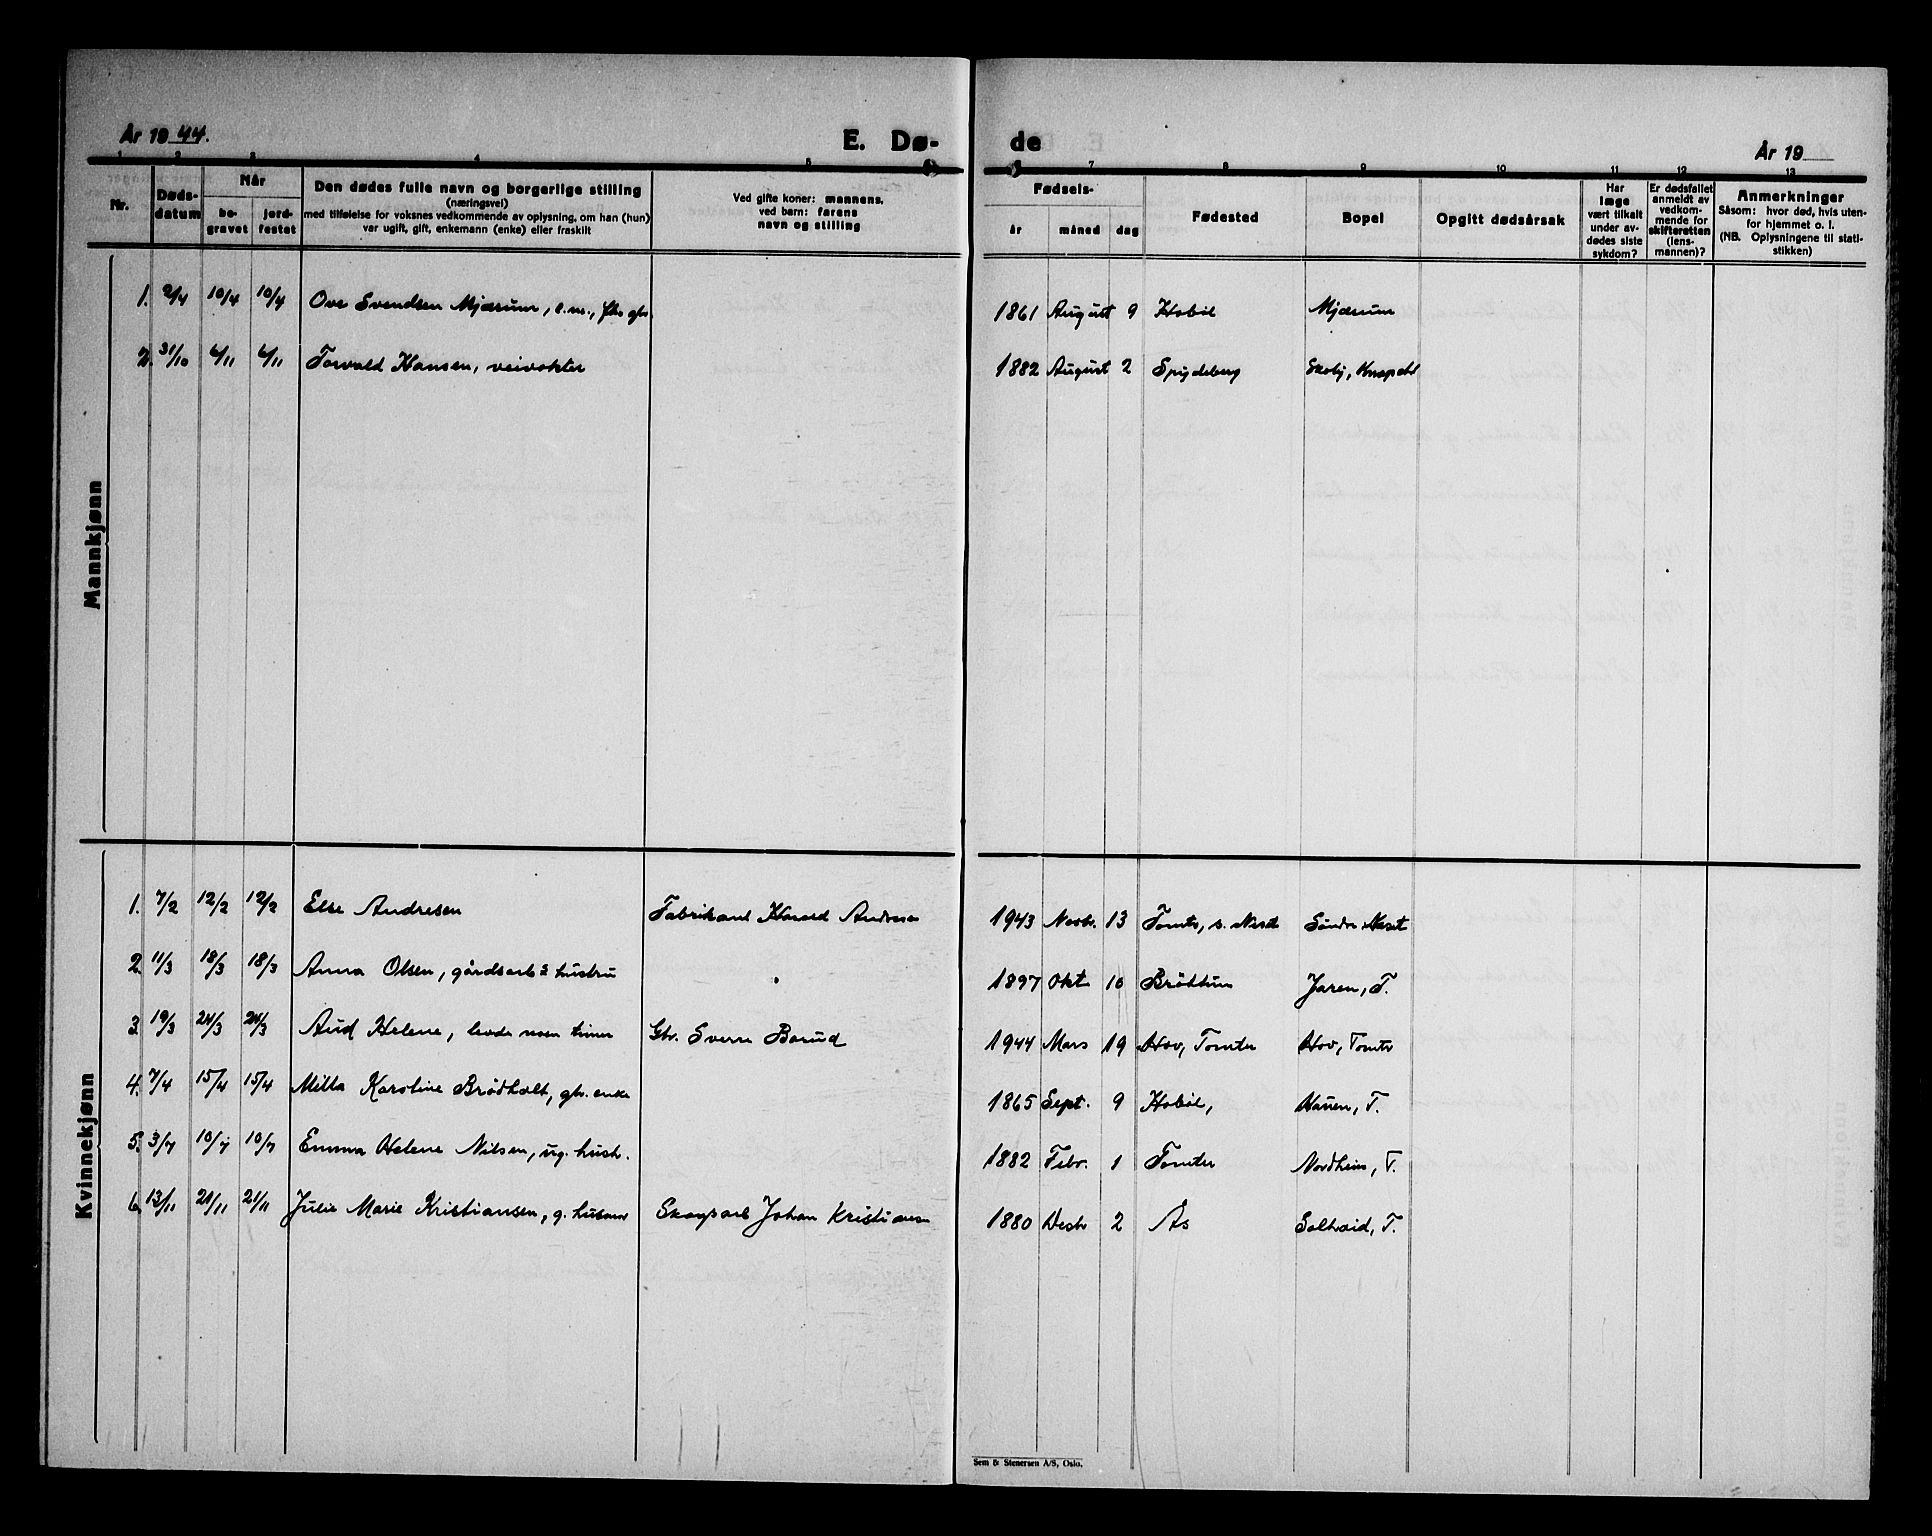 År 1944. E. Dø- de År 19
1 2 3 4 5 6 7 8 9 10 11 12 13
Nr.
Døds-
datum
Når
be-
gravet
jord-
festet
Den dødes fulle navn og borgerlige stilling
(næringsvei)
med tilføielse for voksnes vedkommende av oplysning, om han (hun)
var ugift, gift, enkemann (enke) eller fraskilt
Ved gifte koner: mannens,
ved barn: farens
navn og stilling
Fødsels-
år måned dag
Fødested
Bopel
Opgitt dødsårsak
Har
læge
vært tilkalt
under av-
dødes siste
sykdom?
Er dødsfallet
anmeldt av
vedkom-
mende for
skifteretten
(lens-
mannen)?
Anmerkninger
Såsom: hvor død, hvis uten-
for hjemmet o. l.
(NB. Oplysningene til stati-
stikken)
Mannkjønn
1. 2/4 10/4 10/4 Ove Svendsen Mjærum, e.m., 1861 August 9 Hobøl Mjærum
2. 31/10 6/11 6/11 Torvald Hansen, veivokter 1882 August 2 Spydeberg
Kvinnekjønn
1. 7/2 12/2 12/2 Else Andresen Fabrikant Harald Andresen 1943 Novbr. 13 Tomter, s. Søndre
2. 11/3 18/3 18/3 Anna Olsen, gårdsarb.s hustru 1897 Okt. 10 Brøttum Jaren, T.
3. 19/3 24/3 24/3 Aud Helene, levde noen timer Gbr. Sverre Borud 1944 Mars 19 Hov, Tomter Hov, Tomter
4. 7/4 15/4 15/4 Milla Karoline Brødholt, gbr. enke 1865 Sept. 9 Hobøl, Hauen, T.
5. 3/7 10/7 10/7 Emma Helene Nilsen, ug. hush. 1882 Febr. 1 Tomter Nordheim, T.
6. 13/11 21/11 21/11 Julie Marie Kristiansen, g. husmor Skogsarb. Johan Kristiansen 1880 Desbr. 2 Ås Solhaid, T.
Sem & Stenersen A/S, Oslo.